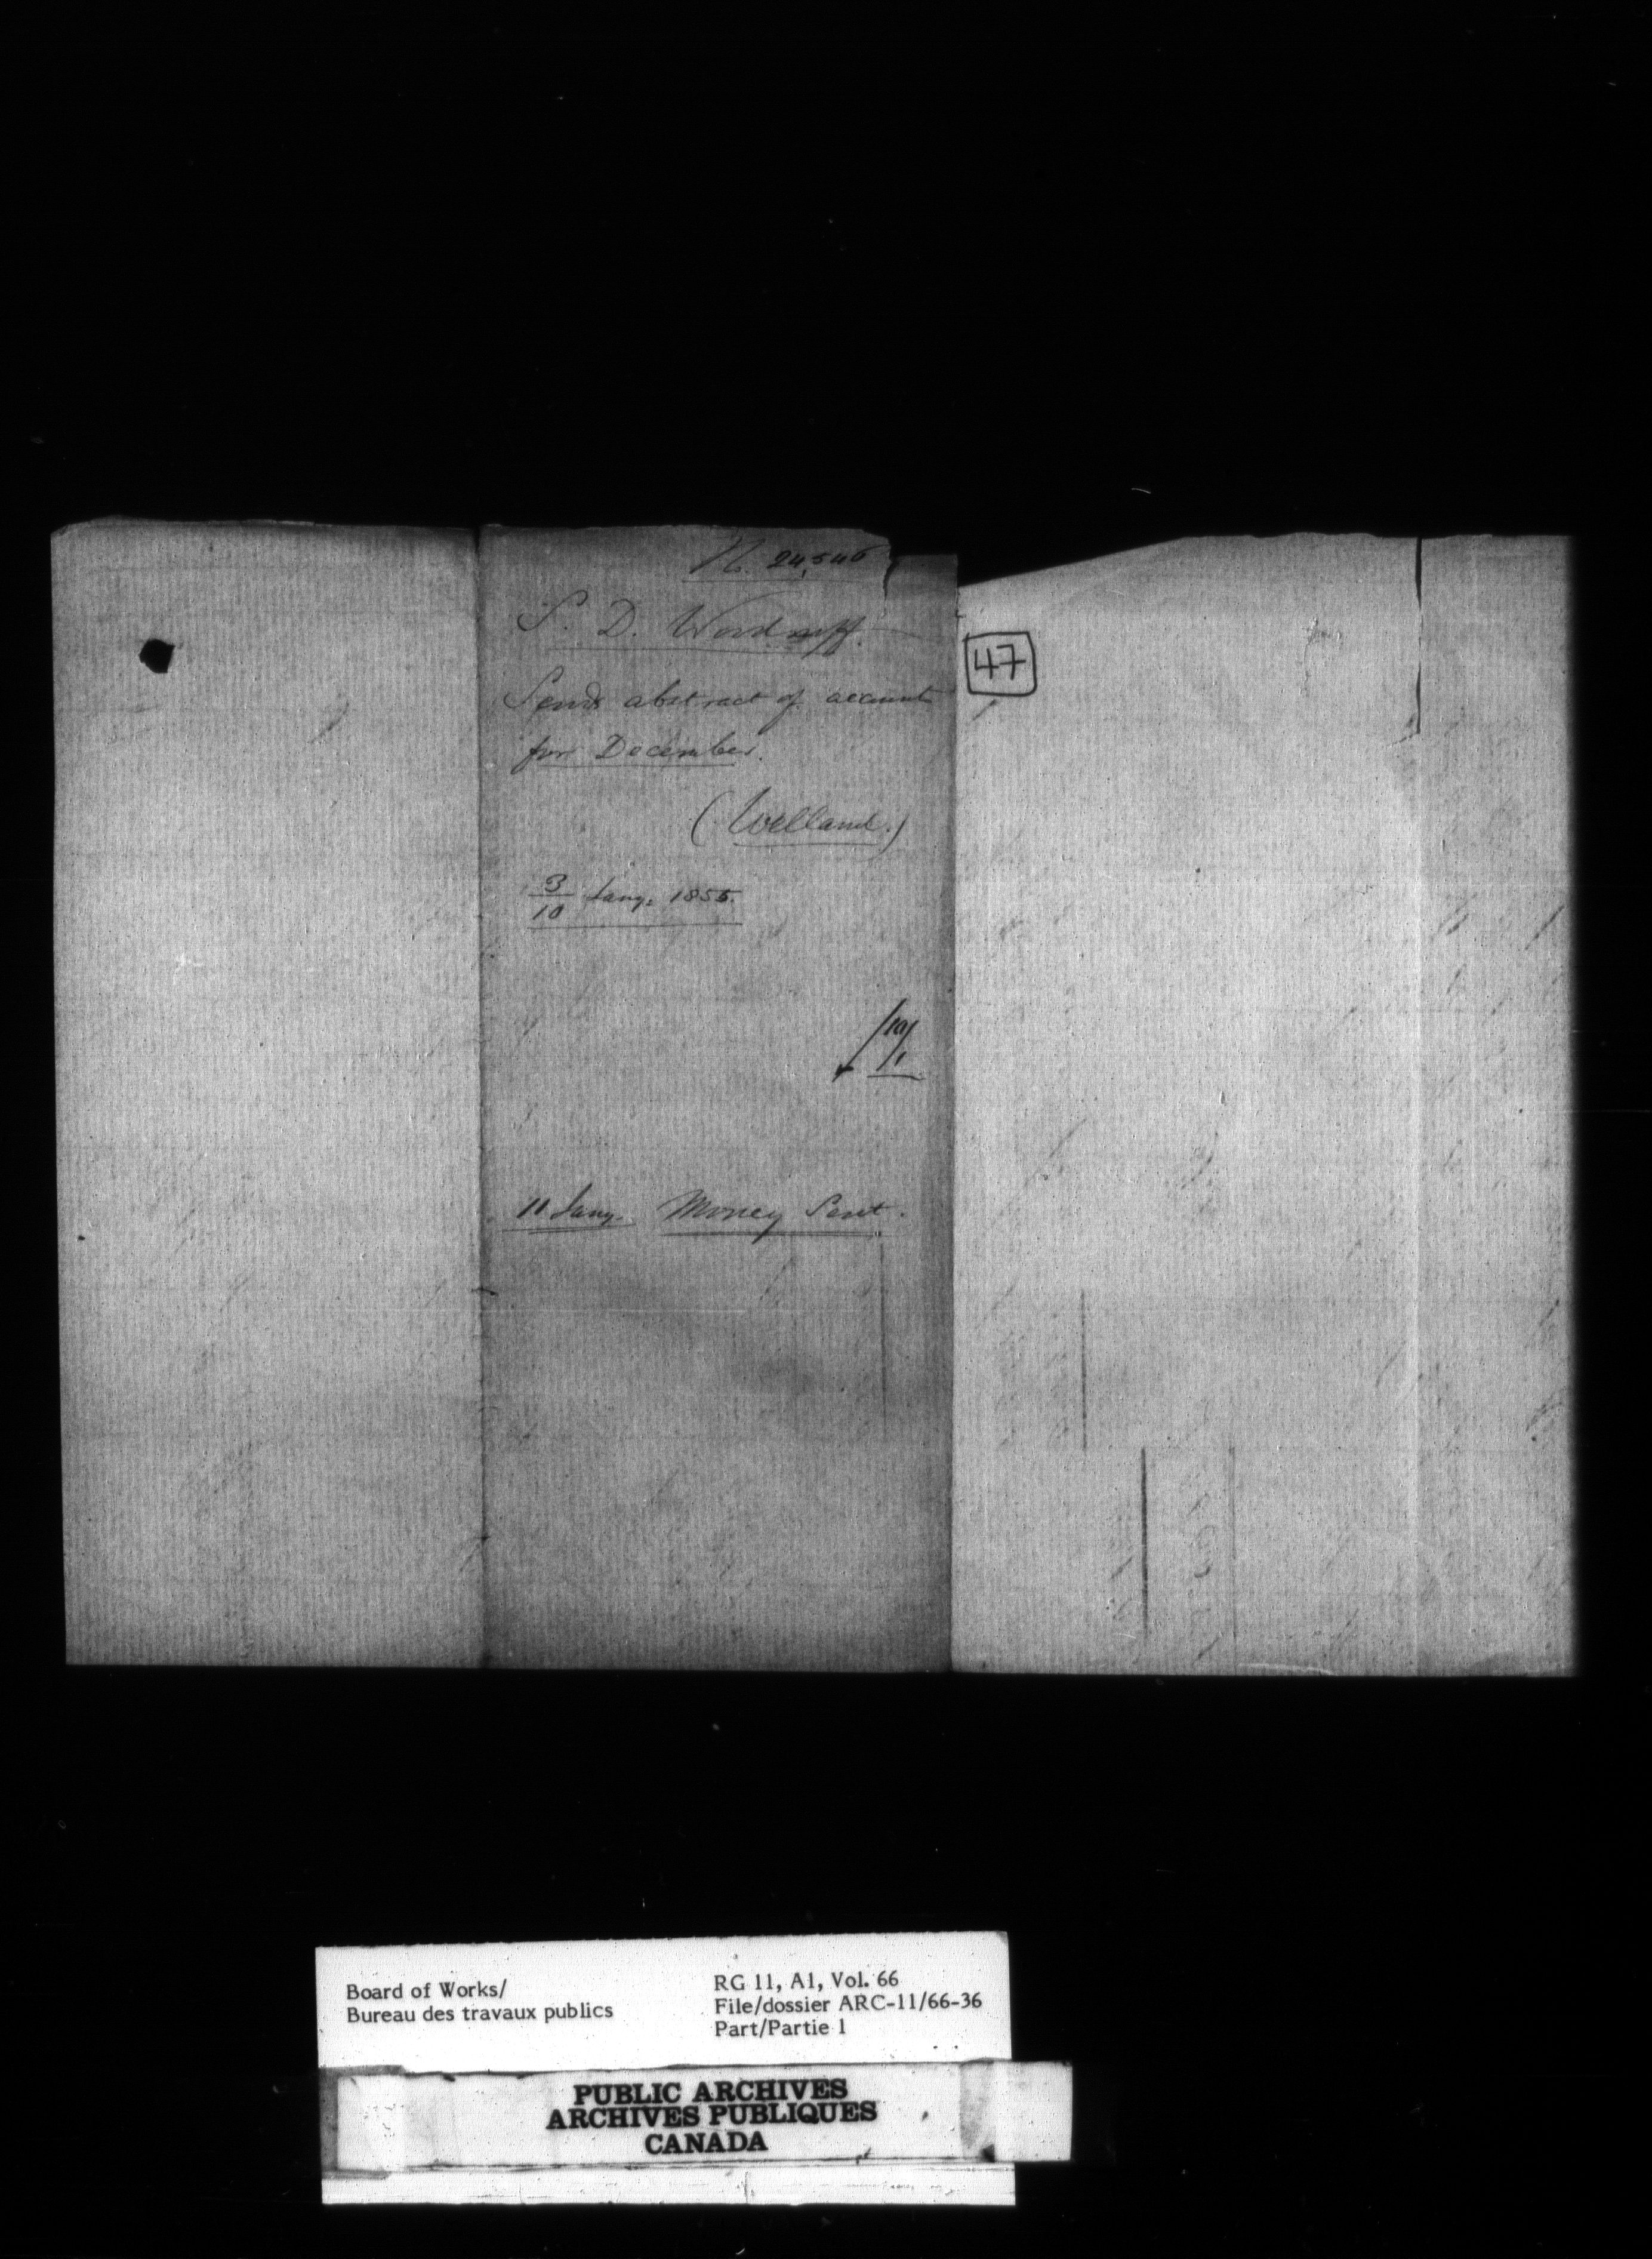 N. 24,546
S. D. Woodruff.
Sends abstract of account
for December.
(Welland.)
3/10 Jany. 1855.
10/1
11 Jany. Money Sent.
47
Board of Works/
Bureau des travaux publics
RG 11, A1, Vol. 66
File/dossier ARC-11/66-36
Part/Partie 1
PUBLIC ARCHIVES
ARCHIVES PUBLIQUES
CANADA